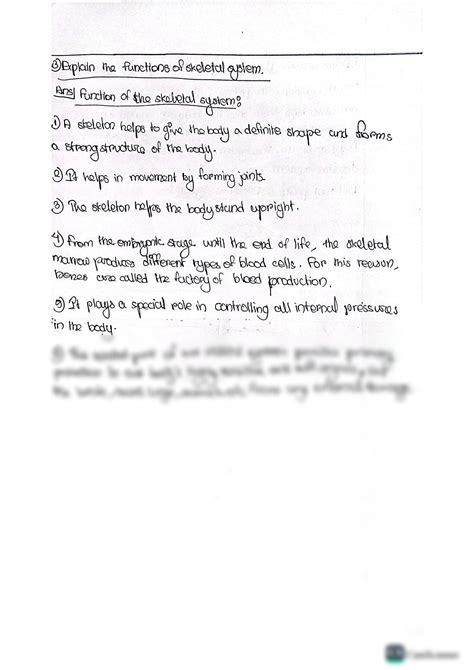 ③ Explain the functions of skeletal system.
Ans] Function of the skeletal system:
1) A skeleton helps to give the body a definite shape and forms
a strong structure of the body.
2) It helps in movement by forming joints.
3) The skeleton helps the body stand upright.
4) From the embryonic stage until the end of life, the skeletal
marrow produces different types of blood cells. For this reason,
bones are called the factory of blood production.
5) It plays a special role in controlling all internal pressures
in the body.